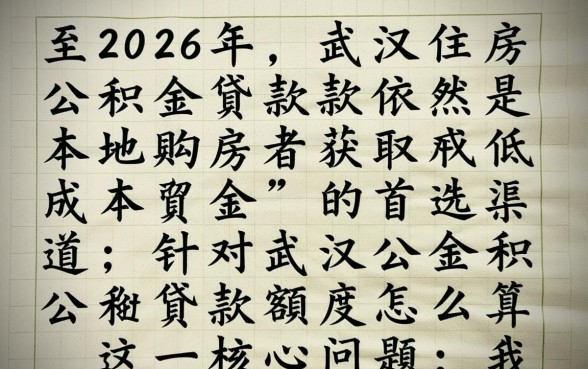 至2026年，武汉住房
公积金貸款款依然是
本地购房者获取戒低
成本貿金”的首选渠
道；针对武汉公金积
公貸款額度怎么算
这一核心问題：我